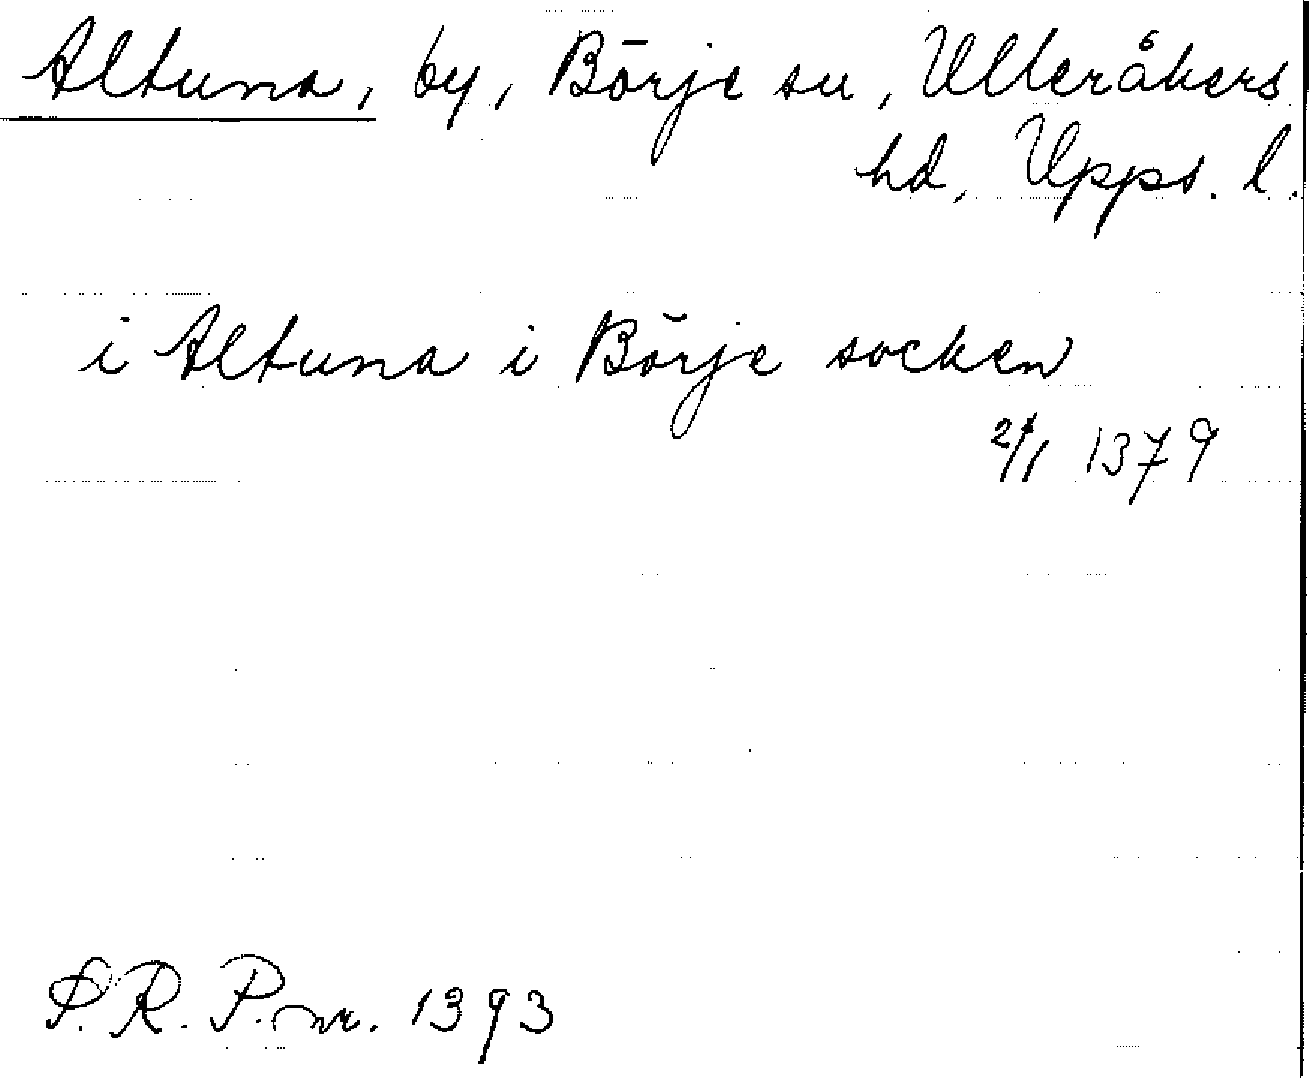 Altuna, by, Börje sn, Ulleråkers
hd, Upps. l.
i Altuna i Börje socken
2/1 1379
S.R.P. nr. 1393